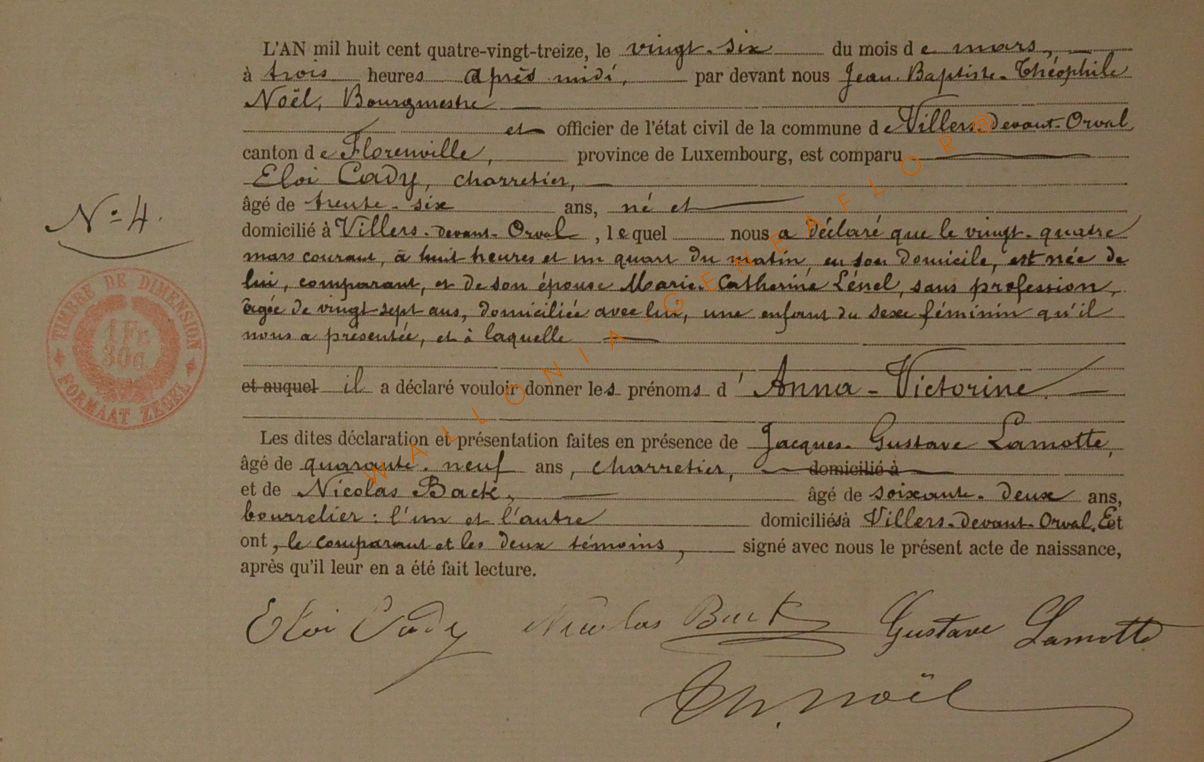 L'AN mil huit cent quatre-vingt-treize, le vingt-six du mois de mars,
à trois heures après midi, par devant nous Jean-Baptiste-Théophile
Noël, Bourgmestre
et officier de l'état civil de la commune de Villers-devant-Orval
canton de Florenville, province de Luxembourg, est comparu
Eloi Cady, charretier,
âgé de trente-six ans, né et
domicilié à Villers-devant-Orval, lequel nous a déclaré que le vingt-quatre
mars courant, à huit heures et un quart du matin, en son domicile, est née de
lui, comparant, et de son épouse Marie-Catherine Lénel, sans profession,
âgée de vingt-sept ans, domiciliée avec lui, une enfant du sexe féminin qu'il
nous a présentée, et à laquelle
et auquel il a déclaré vouloir donner les prénoms d'Anna-Victorine.
Les dites déclaration et présentation faites en présence de Jacques-Gustave Lamotte,
âgé de quarante-neuf ans, charretier, domicilié à
et de Nicolas Back, âgé de soixante-deux ans,
bourrelier : l'un et l'autre domiciliés à Villers-devant-Orval. Et
ont, le comparant et les deux témoins, signé avec nous le présent acte de naissance,
après qu'il leur en a été fait lecture.
No 4.
TIMBRE DE DIMENSION
1 Fr.
30c.
FORMAAT ZEGEL
WALLONIA.GENEAFLOR@
Eloi Cady Nicolas Back Gustave Lamotte
Th. Noël